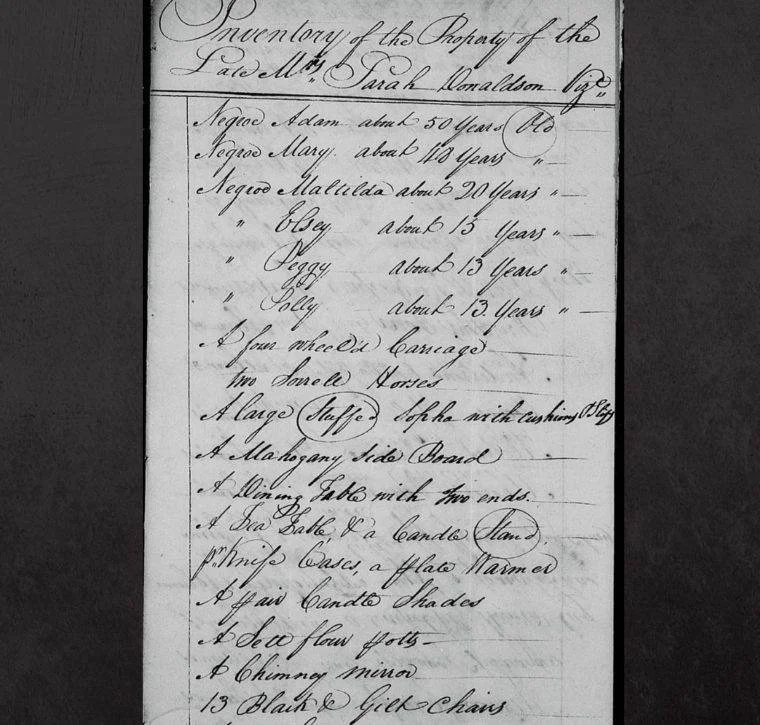 Inventory of the Property of the
Late Mrs Sarah Donaldson Vizt
Negroe Adam about 50 Years Old
Negroe Mary about 48 Years "
Negroe Maltilda about 20 Years "
" Elsey about 15 Years "
" Peggy about 13 Years "
" Polly about 13 Years "
A four wheel'd Carriage
two Sorrell Horses
A large Stuffed Sopha with cushions &
A Mahogany Side Board
A Dining Table with two ends
A Tea Table, & a Candle Stand
pr Knife Cases, a plate Warmer
A pair Candle Shades
A Sett flour potts
A Chimney mirror
13 Black & Gilt Chairs